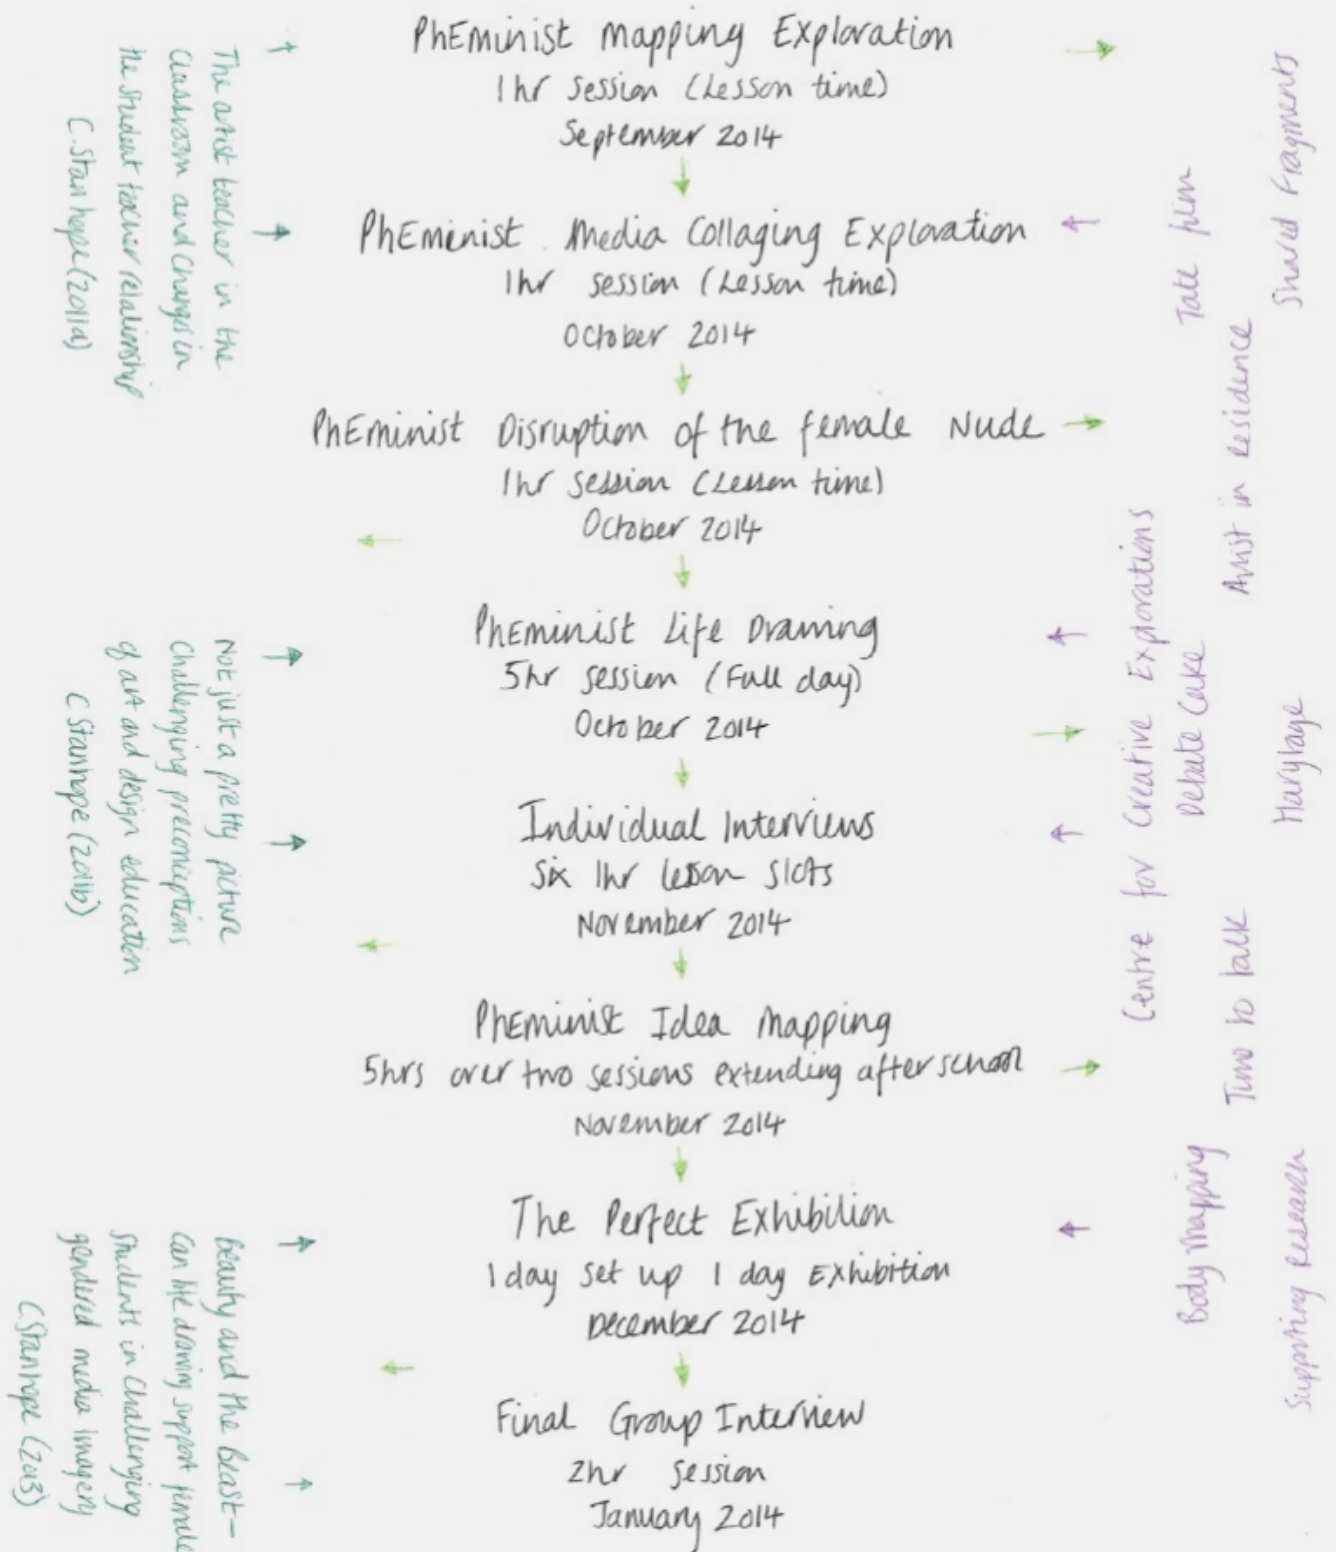 PhEminist Mapping Exploration
1hr Session (Lesson time)
September 2014
PhEminist Media Collaging Exploration
1hr session (Lesson time)
October 2014
PhEminist Disruption of the female Nude
1hr Session (Lesson time)
October 2014
PhEminist Life Drawing
5hr session (Full day)
October 2014
Individual Interviews
Six 1hr lesson slots
November 2014
PhEminist Idea Mapping
5hrs over two sessions extending after school
November 2014
The Perfect Exhibition
1 day set up 1 day Exhibition
December 2014
Final Group Interview
2hr Session
January 2014
The artist teacher in the
classroom and changes in
the student teacher relationship
C. Stanhope (2011a)
Not just a pretty picture
Challenging preconceptions
of art and design education
C Stanhope (2011b)
Beauty and the Beast –
Can life drawing support female
students in challenging
gendered media imagery
C Stanhope (2013)
Shared Fragments
Tate film
Artist in residence
Centre for Creative Explorations
Debate Cake
Time to talk
Body Mapping
Supporting Research